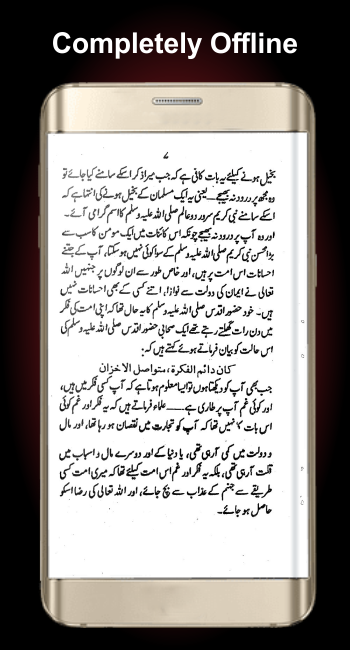 Completely Offline
۷
بخیل ہونے کیلئے یہ بات کافی ہے کہ جب میرا ذکر اسکے سامنے کیا جائے تو
وہ مجھ پر درود نہ بھیجے ۔ یعنی یہ ایک مسلمان کے بخیل ہونے کی انتہا ہے کہ
اسکے سامنے نبی کریم سرور دو عالم صلی اللہ علیہ وسلم کا اسم گرامی آئے ۔
اور وہ آپ پر درود نہ بھیجے چونکہ اس کائنات میں ایک مومن کا سب سے
بڑا محسن نبی کریم صلی اللہ علیہ وسلم کے سوا کوئی نہیں ہو سکتا، آپ کے جتنے
احسانات اس امت پر ہیں، اور خاص طور سے ان لوگوں پر جنہیں اللہ
تعالی نے ایمان کی دولت سے نوازا، اتنے کسی کے بھی احسانات نہیں
ہیں۔ خود حضور اقدس صلی اللہ علیہ وسلم کا یہ حال تھا کہ اپنی امت کی فکر
میں دن رات گھلتے رہتے تھے ایک صحابی حضور اقدس صلی اللہ علیہ وسلم کی
اس حالت کو بیان فرماتے ہوئے کہتے ہیں کہ :
كان دائم الفكرة ، متواصل الاحزان
جب بھی آپ کو دیکھتا ہوں تو ایسا معلوم ہوتا ہے کہ آپ کسی فکر میں ہیں،
اور کوئی غم آپ پر طاری ہے ۔۔۔ علماء فرماتے ہیں کہ یہ فکر اور غم کوئی
اس بات کا نہیں تھا کہ آپ کو تجارت میں نقصان ہو رہا تھا، اور مال
و دولت میں کمی آ رہی تھی، یا دنیا کے اور دوسرے مال و اسباب میں
قلت آ رہی تھی، بلکہ یہ فکر اور غم اس امت کیلئے تھا کہ میری امت کسی
طریقے سے جہنم کے عذاب سے بچ جائے، اور اللہ تعالی کی رضا اسکو
حاصل ہو جائے ۔